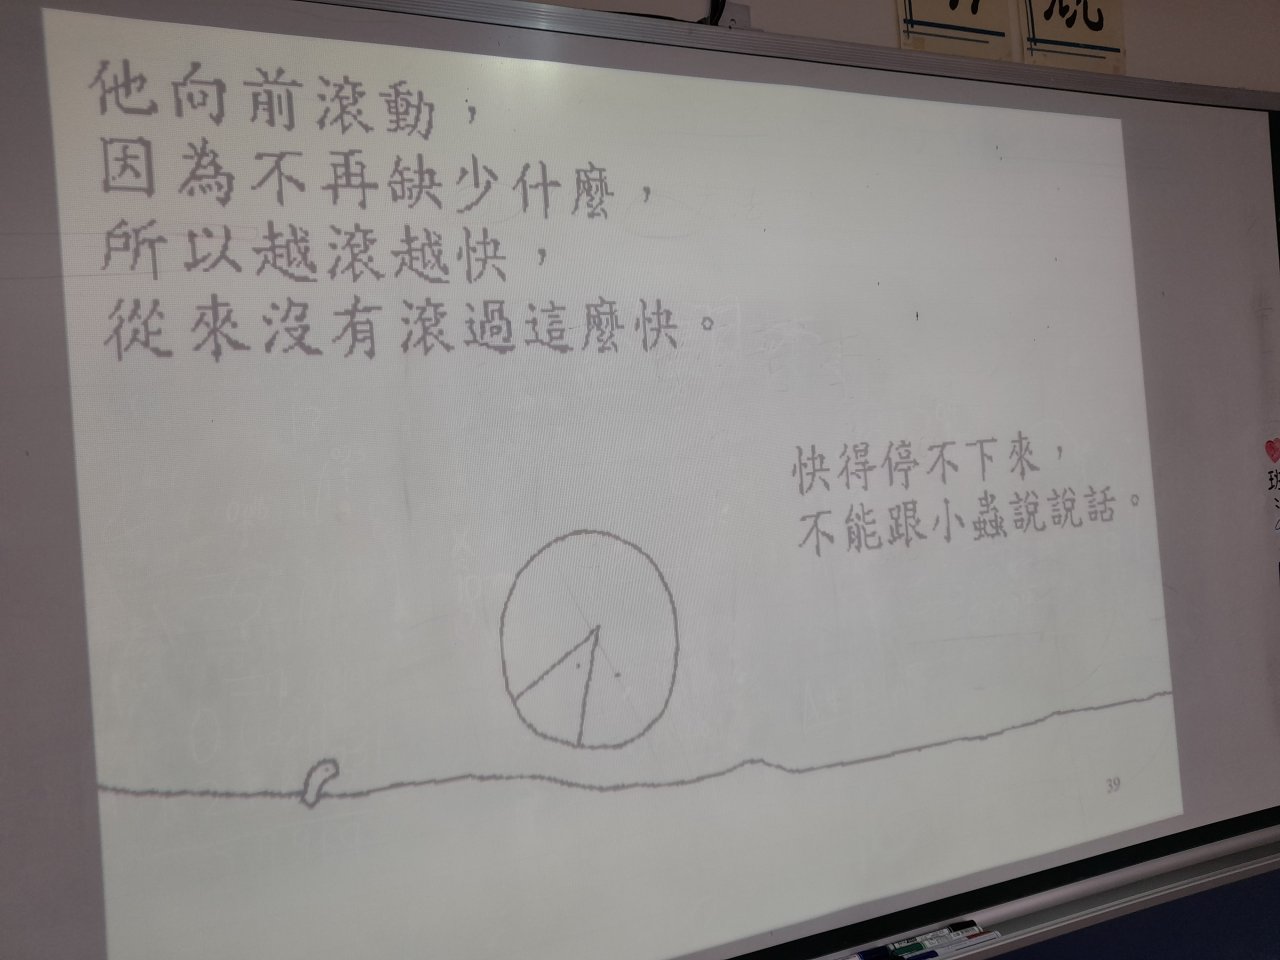 他向前滾動，
因為不再缺少什麼，
所以越滾越快，
從來沒有滾過這麼快。
快得停不下來，
不能跟小蟲說說話。
39